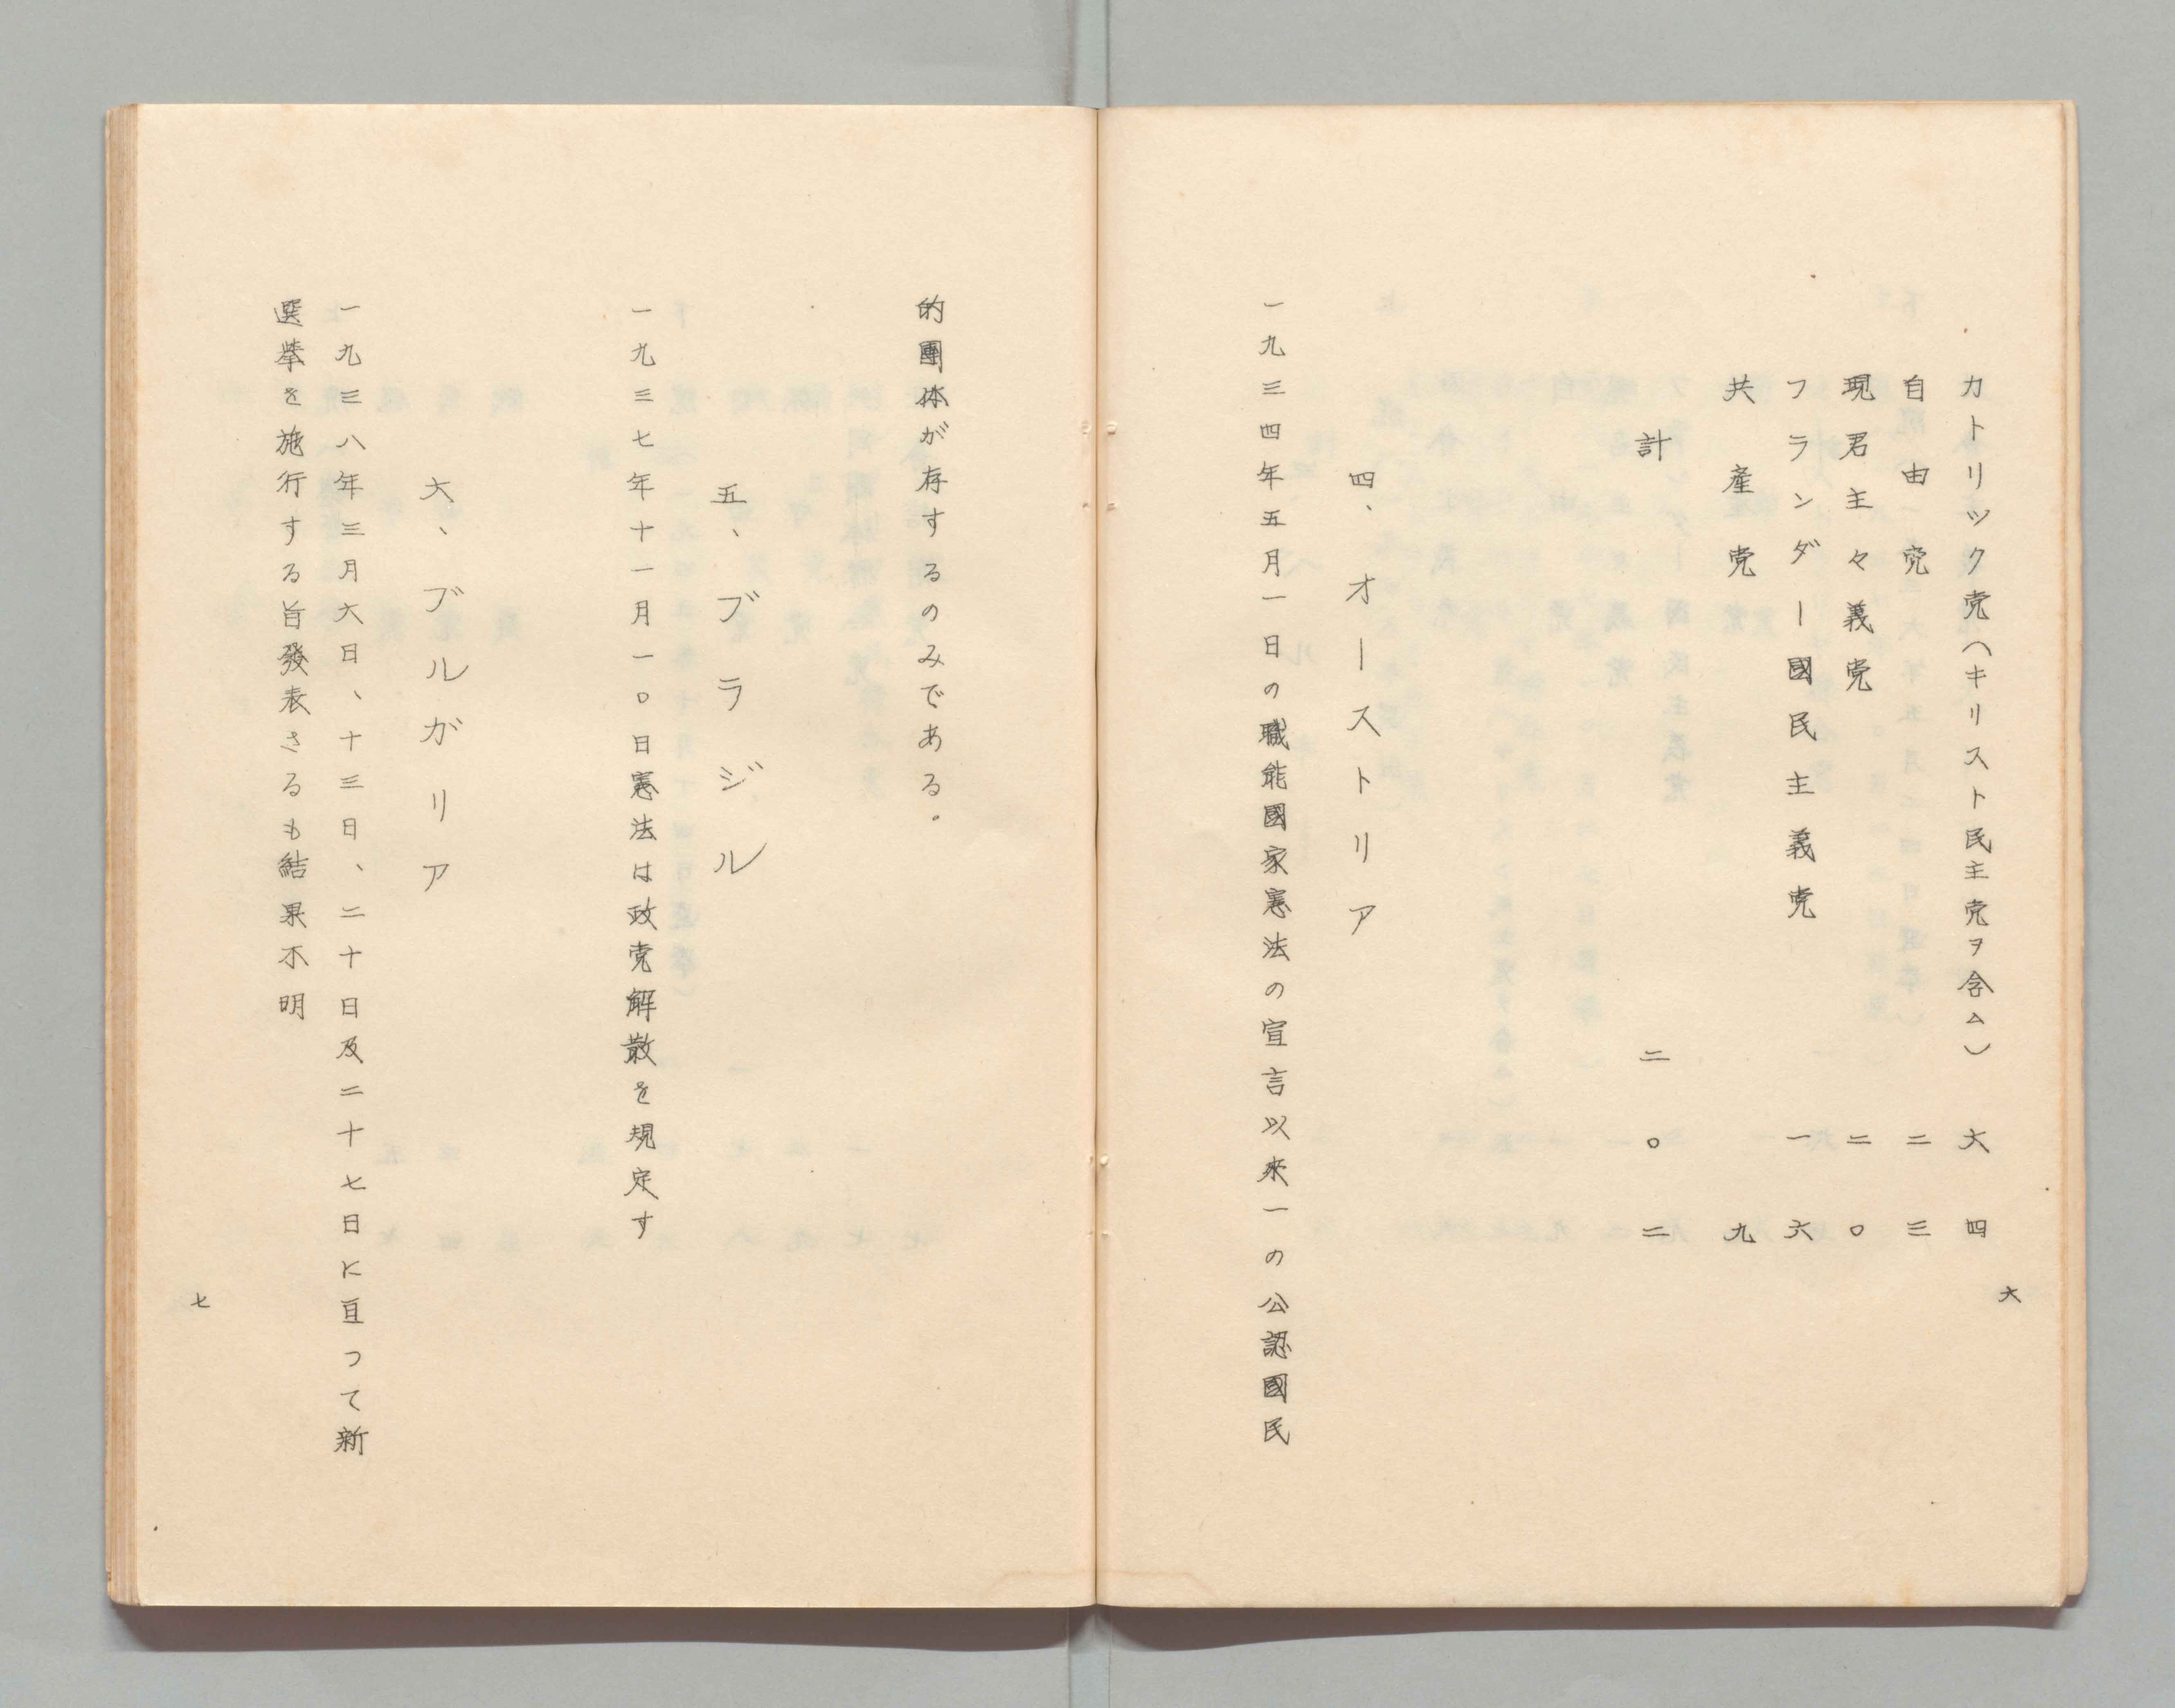 六
カトリック党(キリスト民主党ヲ含ム) 六四
自由党 二三
現君主々義党 二〇
フランダー國民主義党 一六
共産党 九
計 二〇二
四、オーストリア
一九三四年五月一日の職能國家憲法の宣言以来一の公認國民
的團体が存するのみである。
五、ブラジル
一九三七年十一月一〇日憲法は政党解散を規定す
六、ブルガリア
一九三八年三月六日、十三日、二十日及二十七日に亘つて新
選挙を施行する旨發表さるも結果不明
七